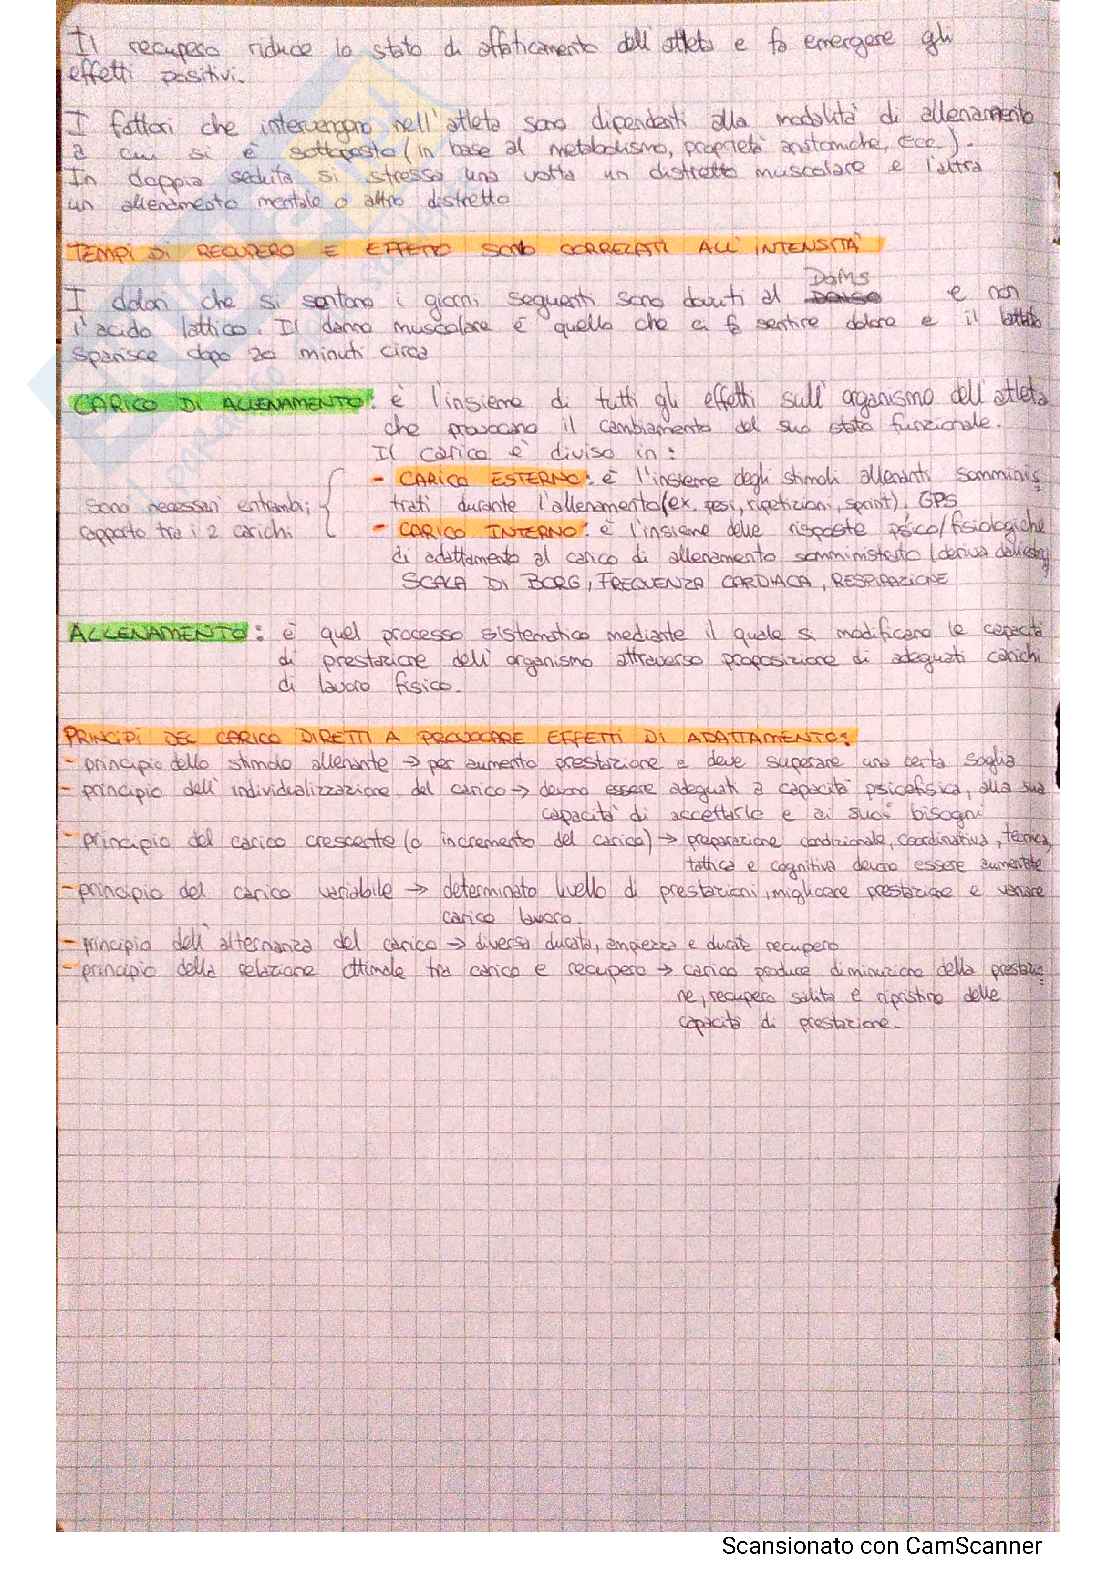 Il recupero riduce lo stato di affaticamento dell'atleta e fa emergere gli
effetti positivi.
I fattori che intervengono nell'atleta sono dipendenti alla modalità di allenamento
a cui si è sottoposto (in base al metabolismo, proprietà anatomiche, ecc.).
In doppia seduta si stressa una volta un distretto muscolare e l'altra
un allenamento mentale o altro distretto
TEMPI DI RECUPERO E EFFETTO SONO CORRELATI ALL'INTENSITÀ
DOMS
I dolori che si sentono i giorni seguenti sono dovuti al e non
l'acido lattico. Il danno muscolare è quello che ci fa sentire dolore e il lattato
sparisce dopo 20 minuti circa
CARICO DI ALLENAMENTO: è l'insieme di tutti gli effetti sull'organismo dell'atleta
che provocano il cambiamento del suo stato funzionale.
Il carico è diviso in:
- CARICO ESTERNO: è l'insieme degli stimoli allenanti somminis
Sono necessari entrambi; trati durante l'allenamento (ex. pesi, ripetizioni, sprint), GPS
rapporto tra i 2 carichi - CARICO INTERNO: è l'insieme delle risposte psico/fisiologiche
di adattamento al carico di allenamento somministrato (deriva
SCALA DI BORG, FREQUENZA CARDIACA, RESPIRAZIONE
ALLENAMENTO: è quel processo sistematico mediante il quale si modificano le capacità
di prestazione dell'organismo attraverso proposizione di adeguati carichi
di lavoro fisico.
PRINCIPI DEL CARICO DIRETTI A PROVOCARE EFFETTI DI ADATTAMENTO:
- principio dello stimolo allenante → per aumento prestazione e deve superare una certa soglia
- principio dell'individualizzazione del carico → devono essere adeguati a capacità psicofisica, alla sua
capacità di accettarlo e ai suoi bisogni
- principio del carico crescente (o incremento del carico) → preparazione condizionale, coordinativa, tecnica,
tattica e cognitiva devono essere aumentate
- principio del carico variabile → determinato livello di prestazioni, migliorare prestazione e variare
carico lavoro.
- principio dell'alternanza del carico → diversa durata, ampiezza e durate recupero
- principio della relazione ottimale tra carico e recupero → carico produce diminuzione della prestazio
ne, recupero salita e ripristino delle
capacità di prestazione.
Scansionato con CamScanner